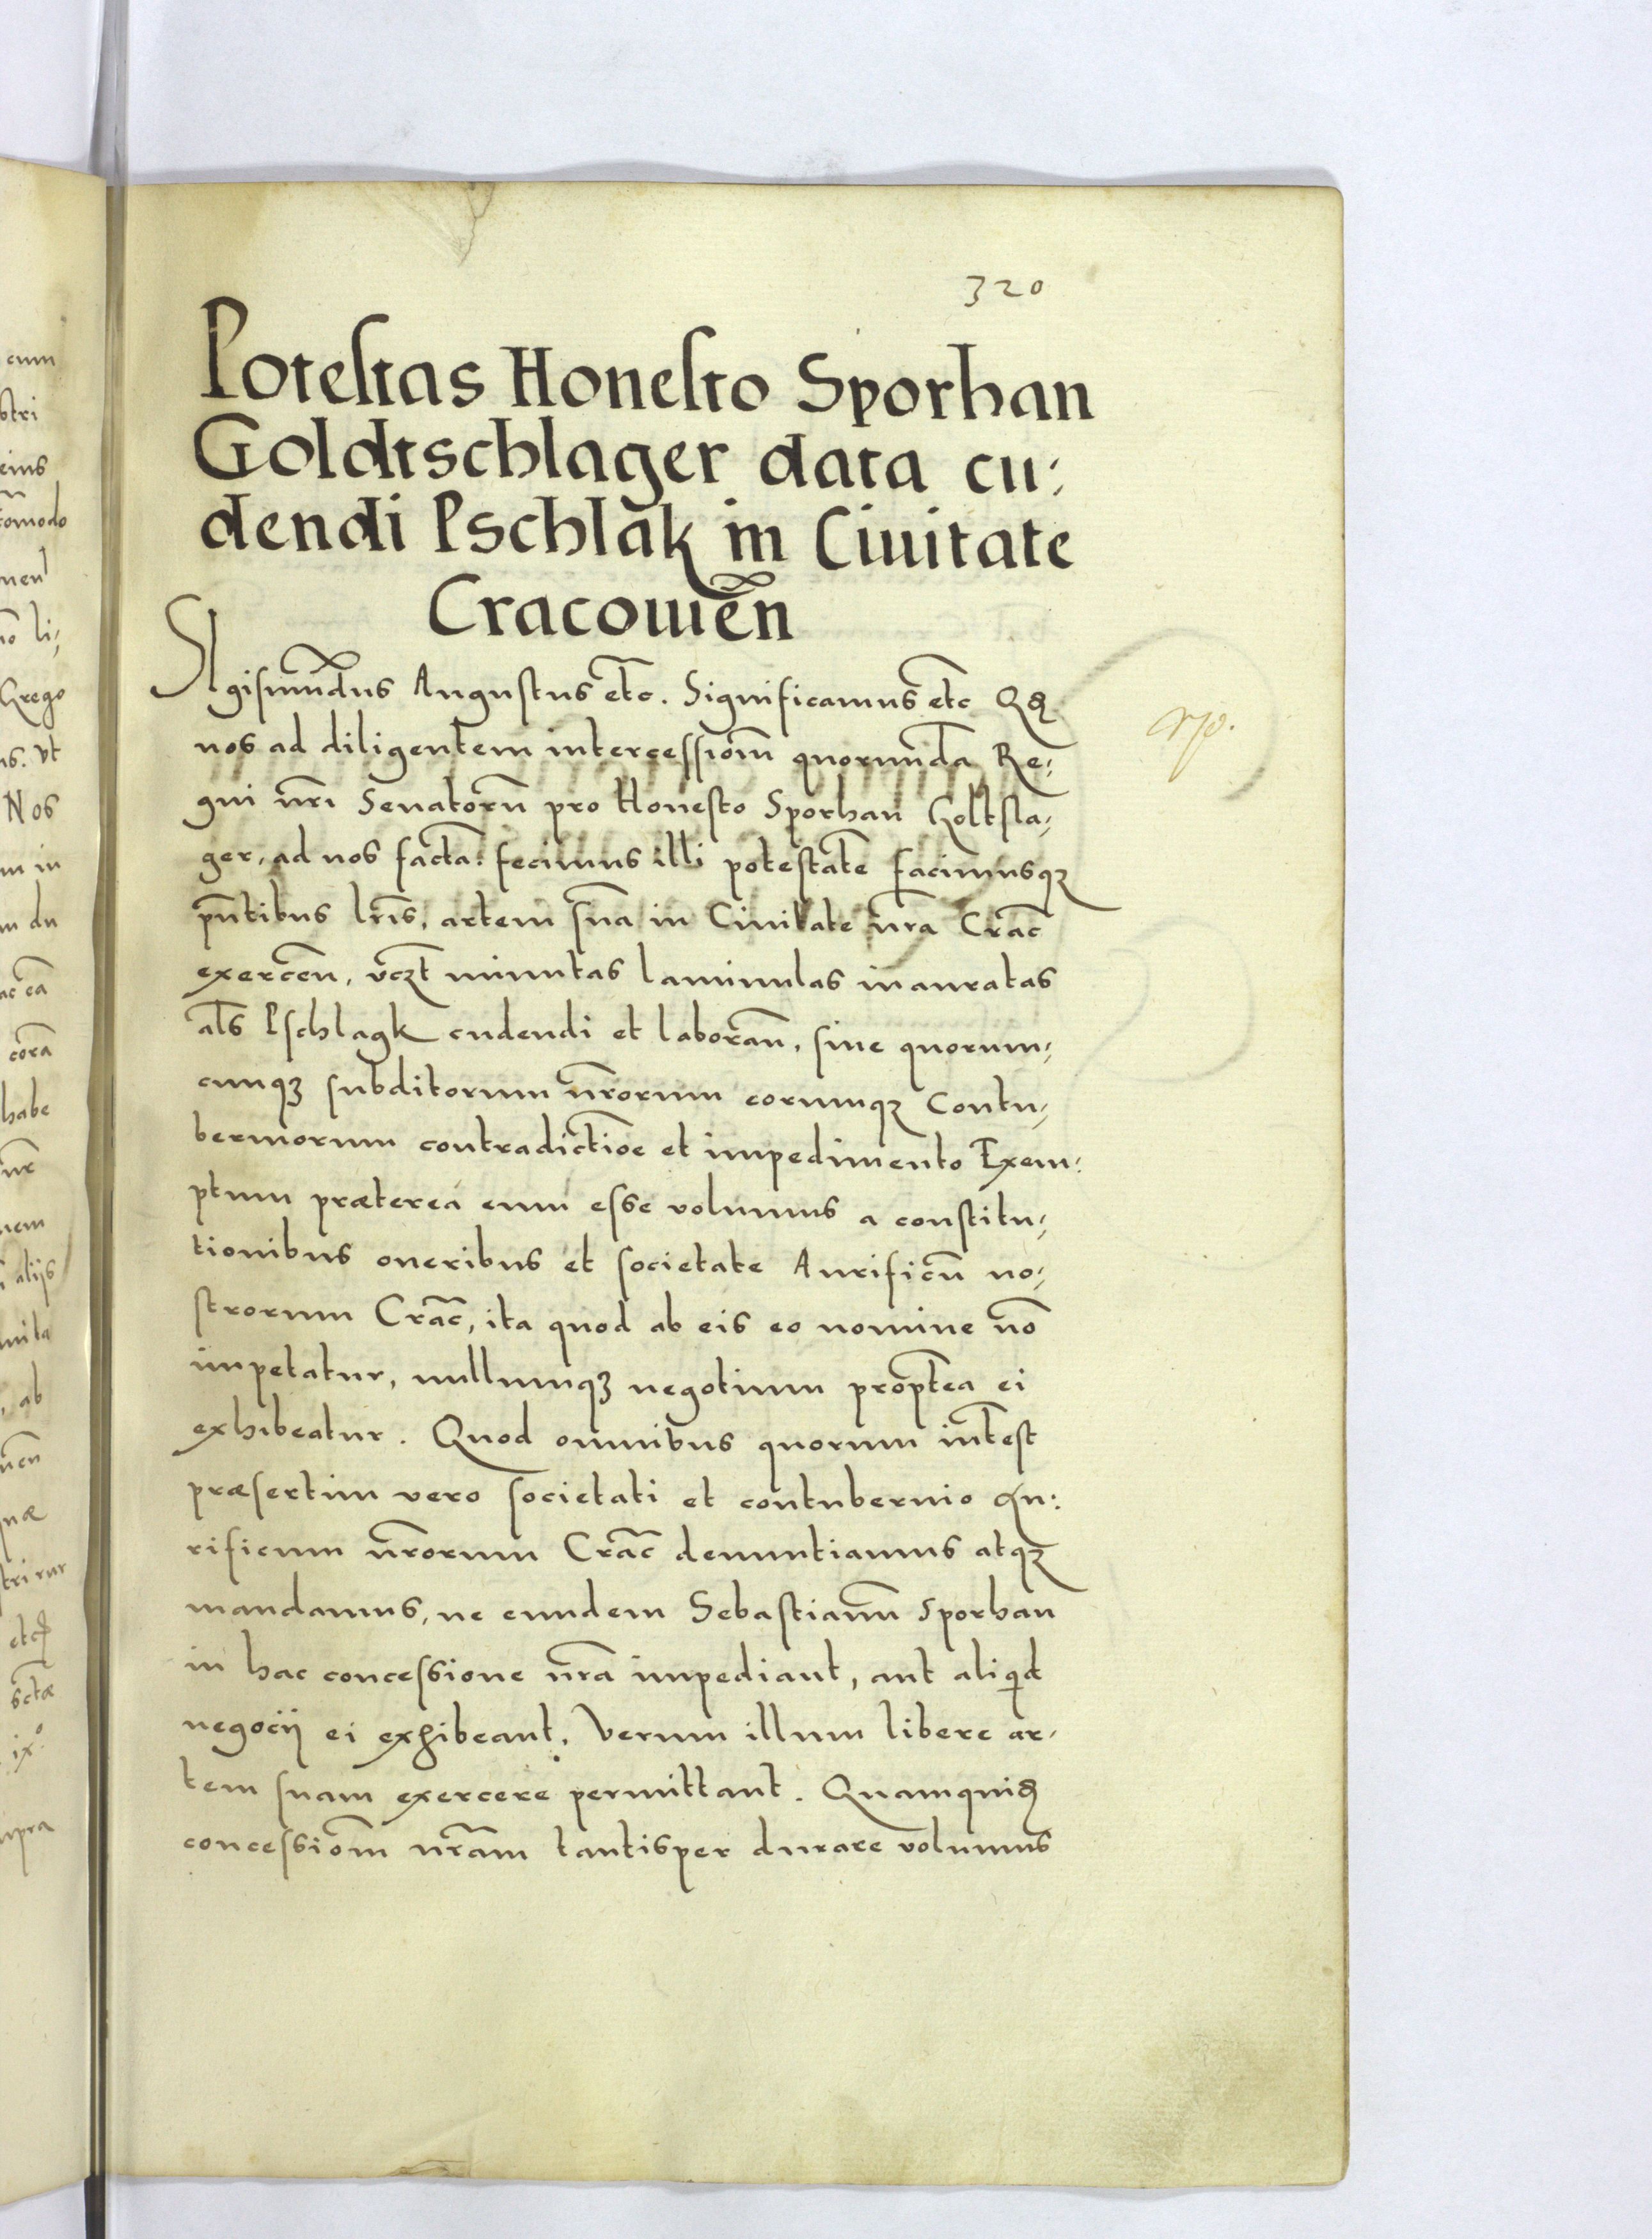 320
Potestas Honesto Sporhan
Goldtschlager data cu:
dendi Pschlak in Ciuitate
Cracouien̄
SIgismund̄us Augustus etc̄. Significamus etc̄ Qđ
nos ad diligentem intercessiom̄ quorumd̄a Re:
gni nr̄i Senatorū pro Honesto Sporhan Goltsla:
ger, ad nos factā: fecimus illi potestatē facimusqꝫ
pn̄tibus lr̄is, artem suā in Ciuitate nr̄a Crac̄
exercen̄, vcꝫt minutas laminulas inauratas
al̄s Pschlagk cudendi et laboran̄, sine quorum:
cunqꝫ subditorum nr̄orum eorumqꝫ Contu:
berniorum contradictiōe et impedimento Exem:
ptum præterea eum esse volumus a constitu:
tionibus oneribus et societate Aurificū no:
strorum Crac̄, ita quod ab eis eo nomine nō
impetatur, nullumqꝫ negotium propt̄ea ei
exhibeatur. Quod omnibus quorum int̄est
præsertim vero societati et contubernio Au:
rificum nr̄orum Crac̄ denuntiamus atqꝫ
mandamus, ne eundem Sebastianū Sporhan
in hac concessione nr̄a impediant, aut aliqd
negocij ei exhibeant, Verum illum libere ar:
tem suam exercere permittant. Quamquidē
concessiom̄ nr̄am tantisper durare volumus
cum
stri
eius
com̄odo
li:
Grego
vt
Nos
m in
m du
corā
habe
nem
alijs
ab
ix°